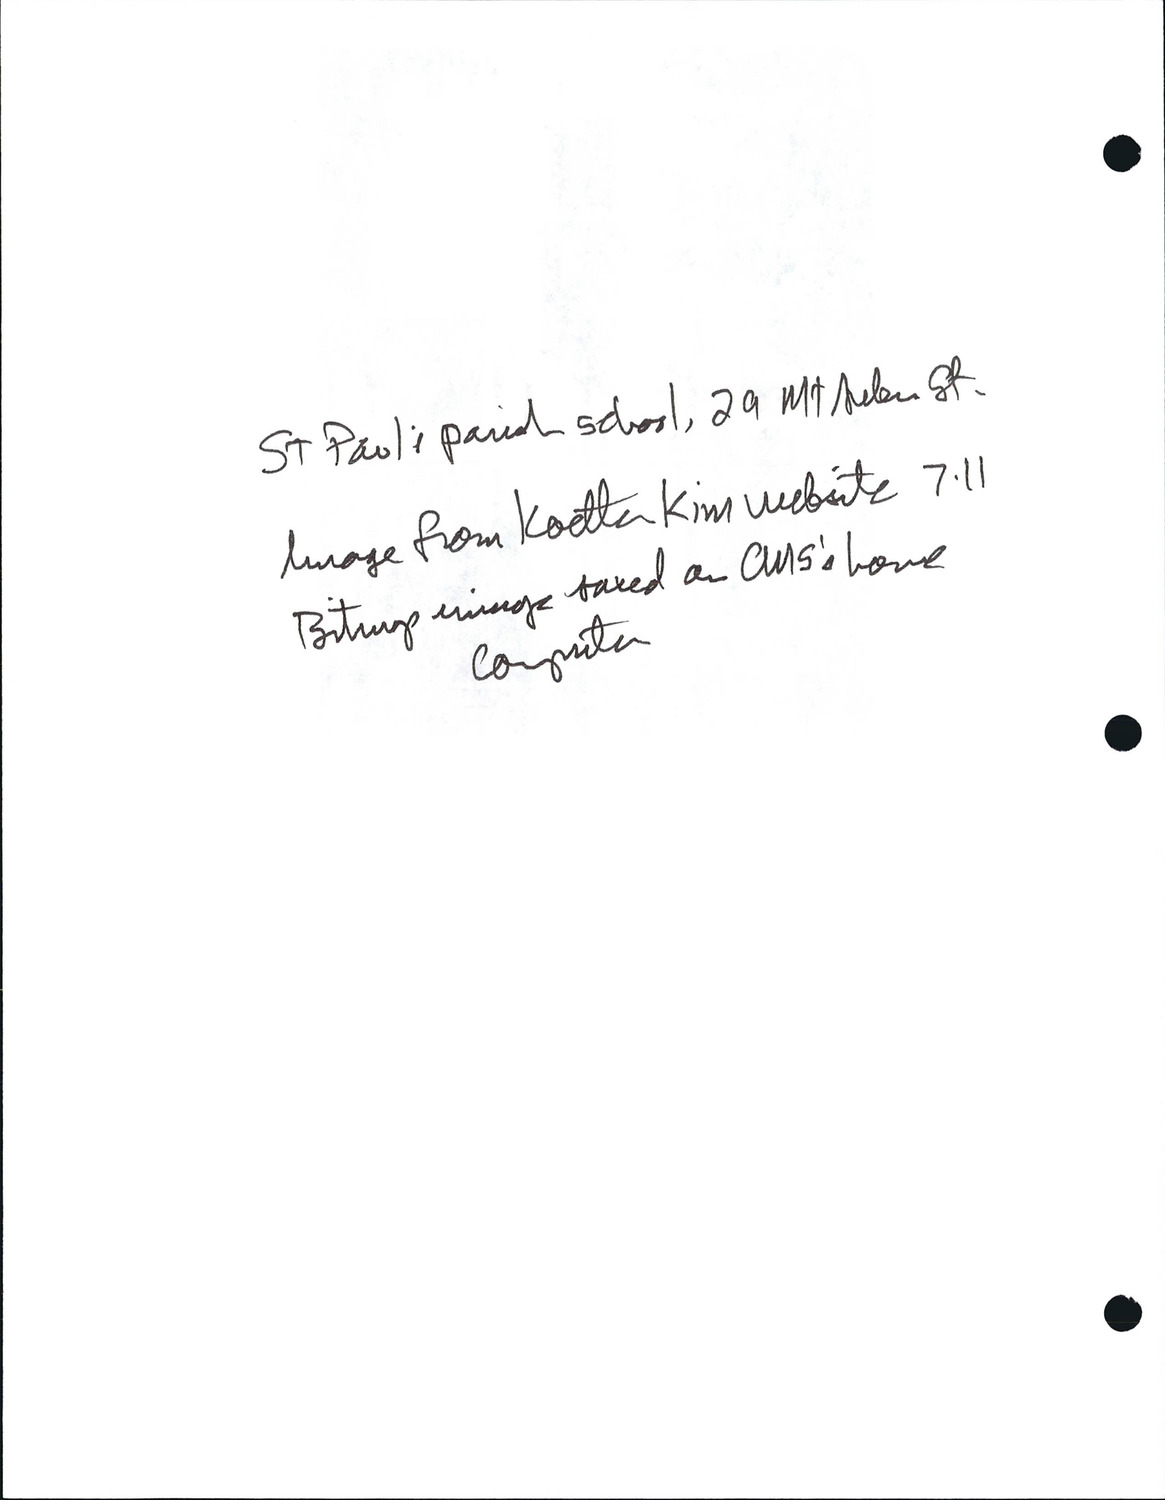 St Paul's parish school, 29 Mt Auburn St.
Image from Koetter Kim website 7.11
Bitmap image saved on CMS's home
computer